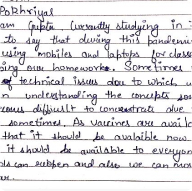 Pabhreiyal
am Gupta Currently studying in
to say that during this pandemic
using mobiles and laptops for classe
oing our homework. Sometimes
of technical issues due to which w
n understanding the concepts so
difficult to concentrate due
sometimes. As vaccines are availa
that it should be available now.
it should be available to everyon
ols can reopen and also we can mov